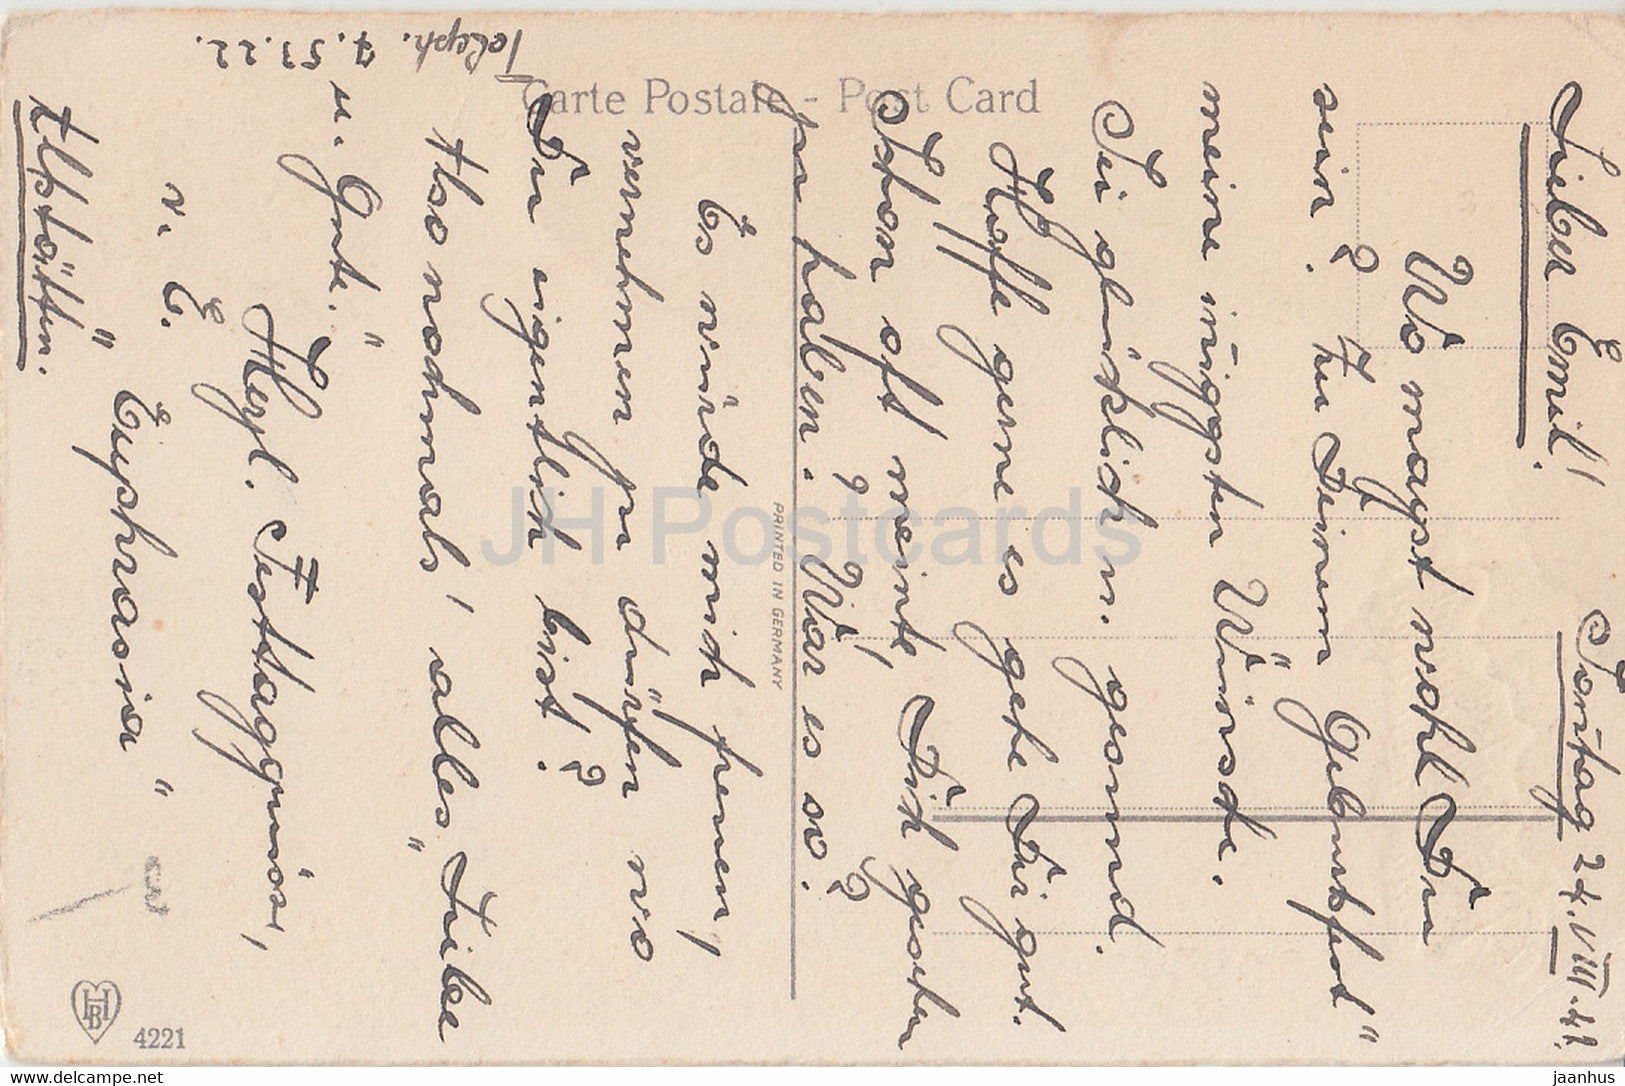 Sontag 24. VIII. 41.
Lieber Emil!
Wo magst wohl Du
sein? Zu Deinem Geburtsfest"
meine innigsten Wünsche.
Sei glücklich u. gesund.
Hoffe gerne es gehe Dir gut.
Schon oft meinte, Dich gesehen
zu haben. ? War es so?
Es würde mich freuen,
vernehmen zu dürfen wo
Du eigentlich bist?
Also nochmals, "alles Liebe
u. Gute."
Herzl. Festtagsgrüsse,
v. E. Euphrasia"
Altstätten.
Teleph. 7.53.22.
Carte Postale - Post Card
PRINTED IN GERMANY
HB
4221
JH Postcards
jaanhus